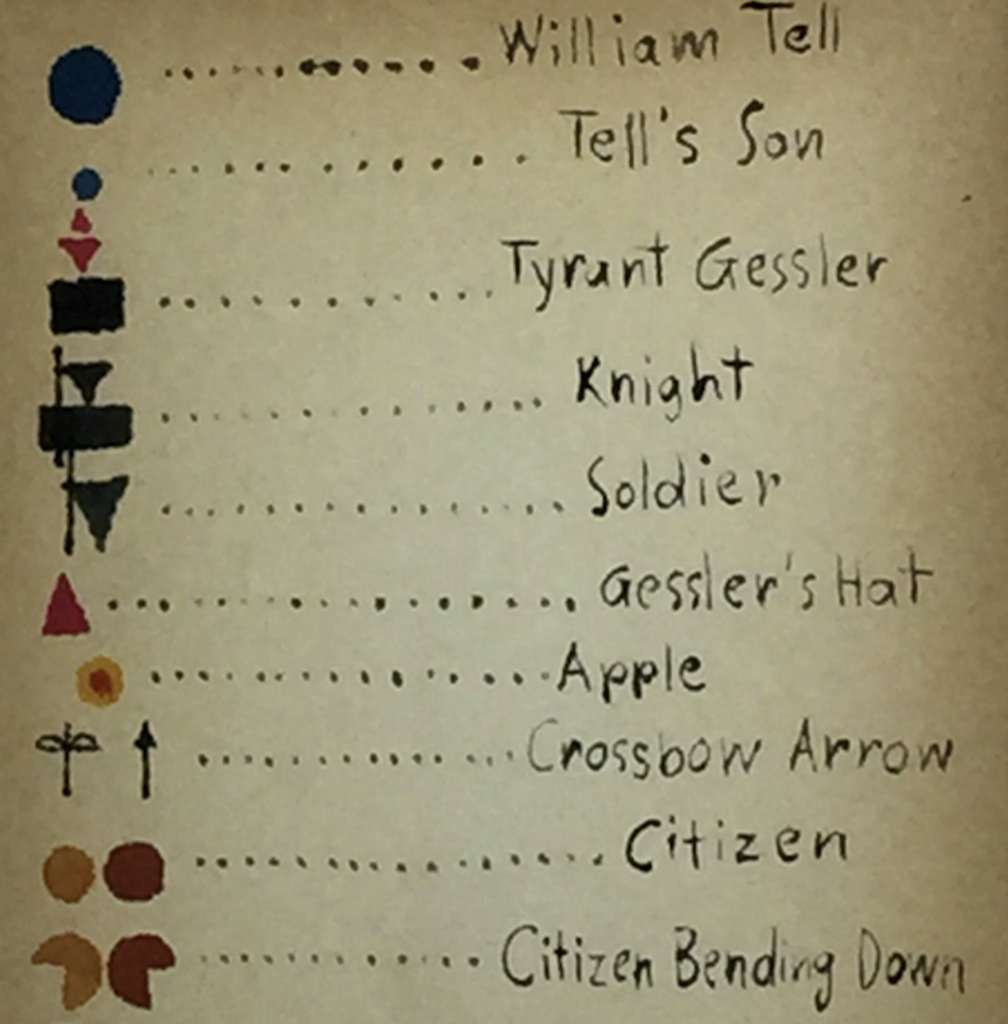 William Tell
Tell's Son
Tyrant Gessler
Knight
Soldier
Gessler's Hat
Apple
Crossbow Arrow
Citizen
Citizen Bending Down